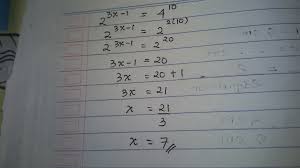 2^{3x-1} = 4^{10}
2^{3x-1} = 2^{2(10)}
2^{3x-1} = 2^{20}
3x-1 = 20
3x = 20+1
3x = 21
x = 21/3
x = 7